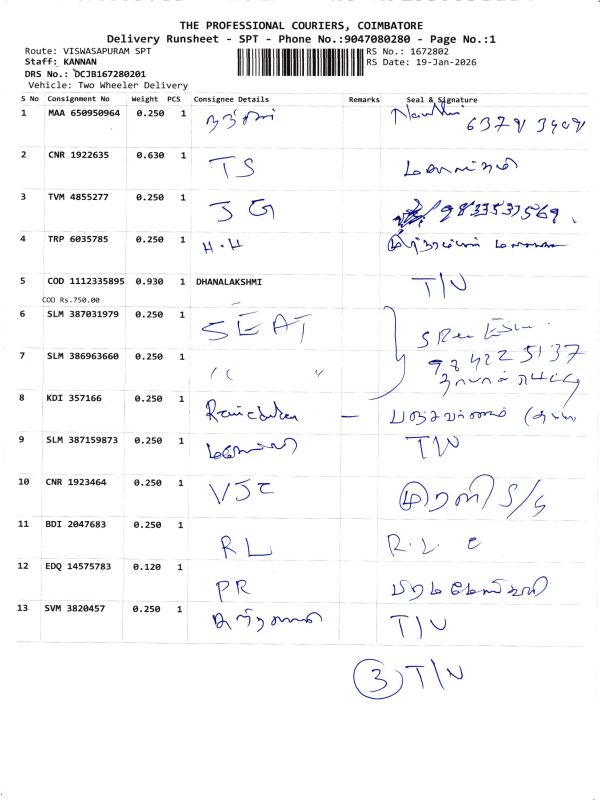 THE PROFESSIONAL COURIERS, COIMBATORE
Delivery Runsheet - SPT - Phone No.:9047080280 - Page No.:1
Route: VISWASAPURAM SPT
RS No.: 1672802
Staff: KANNAN
RS Date: 19-Jan-2026
DRS No.: DCJB167280201
Vehicle: Two Wheeler Delivery
S No Consignment No Weight PCS Consignee Details Remarks Seal & Signature
1 MAA 650950964 0.250 1
2 CNR 1922635 0.630 1 TS
3 TVM 4855277 0.250 1 JG 9833533569
4 TRP 6035785 0.250 1 H.H
5 COD 1112335895 0.930 1 DHANALAKSHMI T/N
COD Rs.750.00
6 SLM 387031979 0.250 1 SEAT
7 SLM 386963660 0.250 1 " " 9842225137
8 KDI 357166 0.250 1
9 SLM 387159873 0.250 1 T/N
10 CNR 1923464 0.250 1 VJC
11 BDI 2047683 0.250 1 RL R.L.
12 EDQ 14575783 0.120 1 PR
13 SVM 3820457 0.250 1 T/N
3 T/N